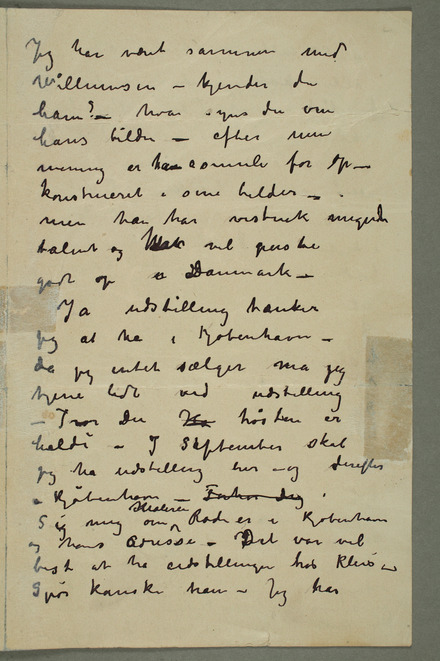 Jeg har været sammen med
Willumsen – kjender du
ham? – hvad synes du om
hans bilder – efter min
mening er han somme for op-
konstrueret i sine bilder –
men han har virkerlig meget
talent og vil ganske
godt op i Danmark –
Ja udstilling tænker
jeg at ha i Kjøbenhavn –
da jeg intet sælger må jeg
tjene lidt ved udstilling
– Tror Du høsten er
heldi – I September skal
jeg ha udstilling her – og derefter
i Kjøbenhavn – Forhør dig
Sig mig om Maleren Rode er i Kjøbenhavn
og hans adresse – Det var vel
best at ha udstillingen hos Kleis –
Spør kanske ham – Jeg har